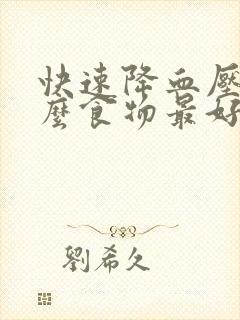 快速降血壓
麼食物最好
劉希久